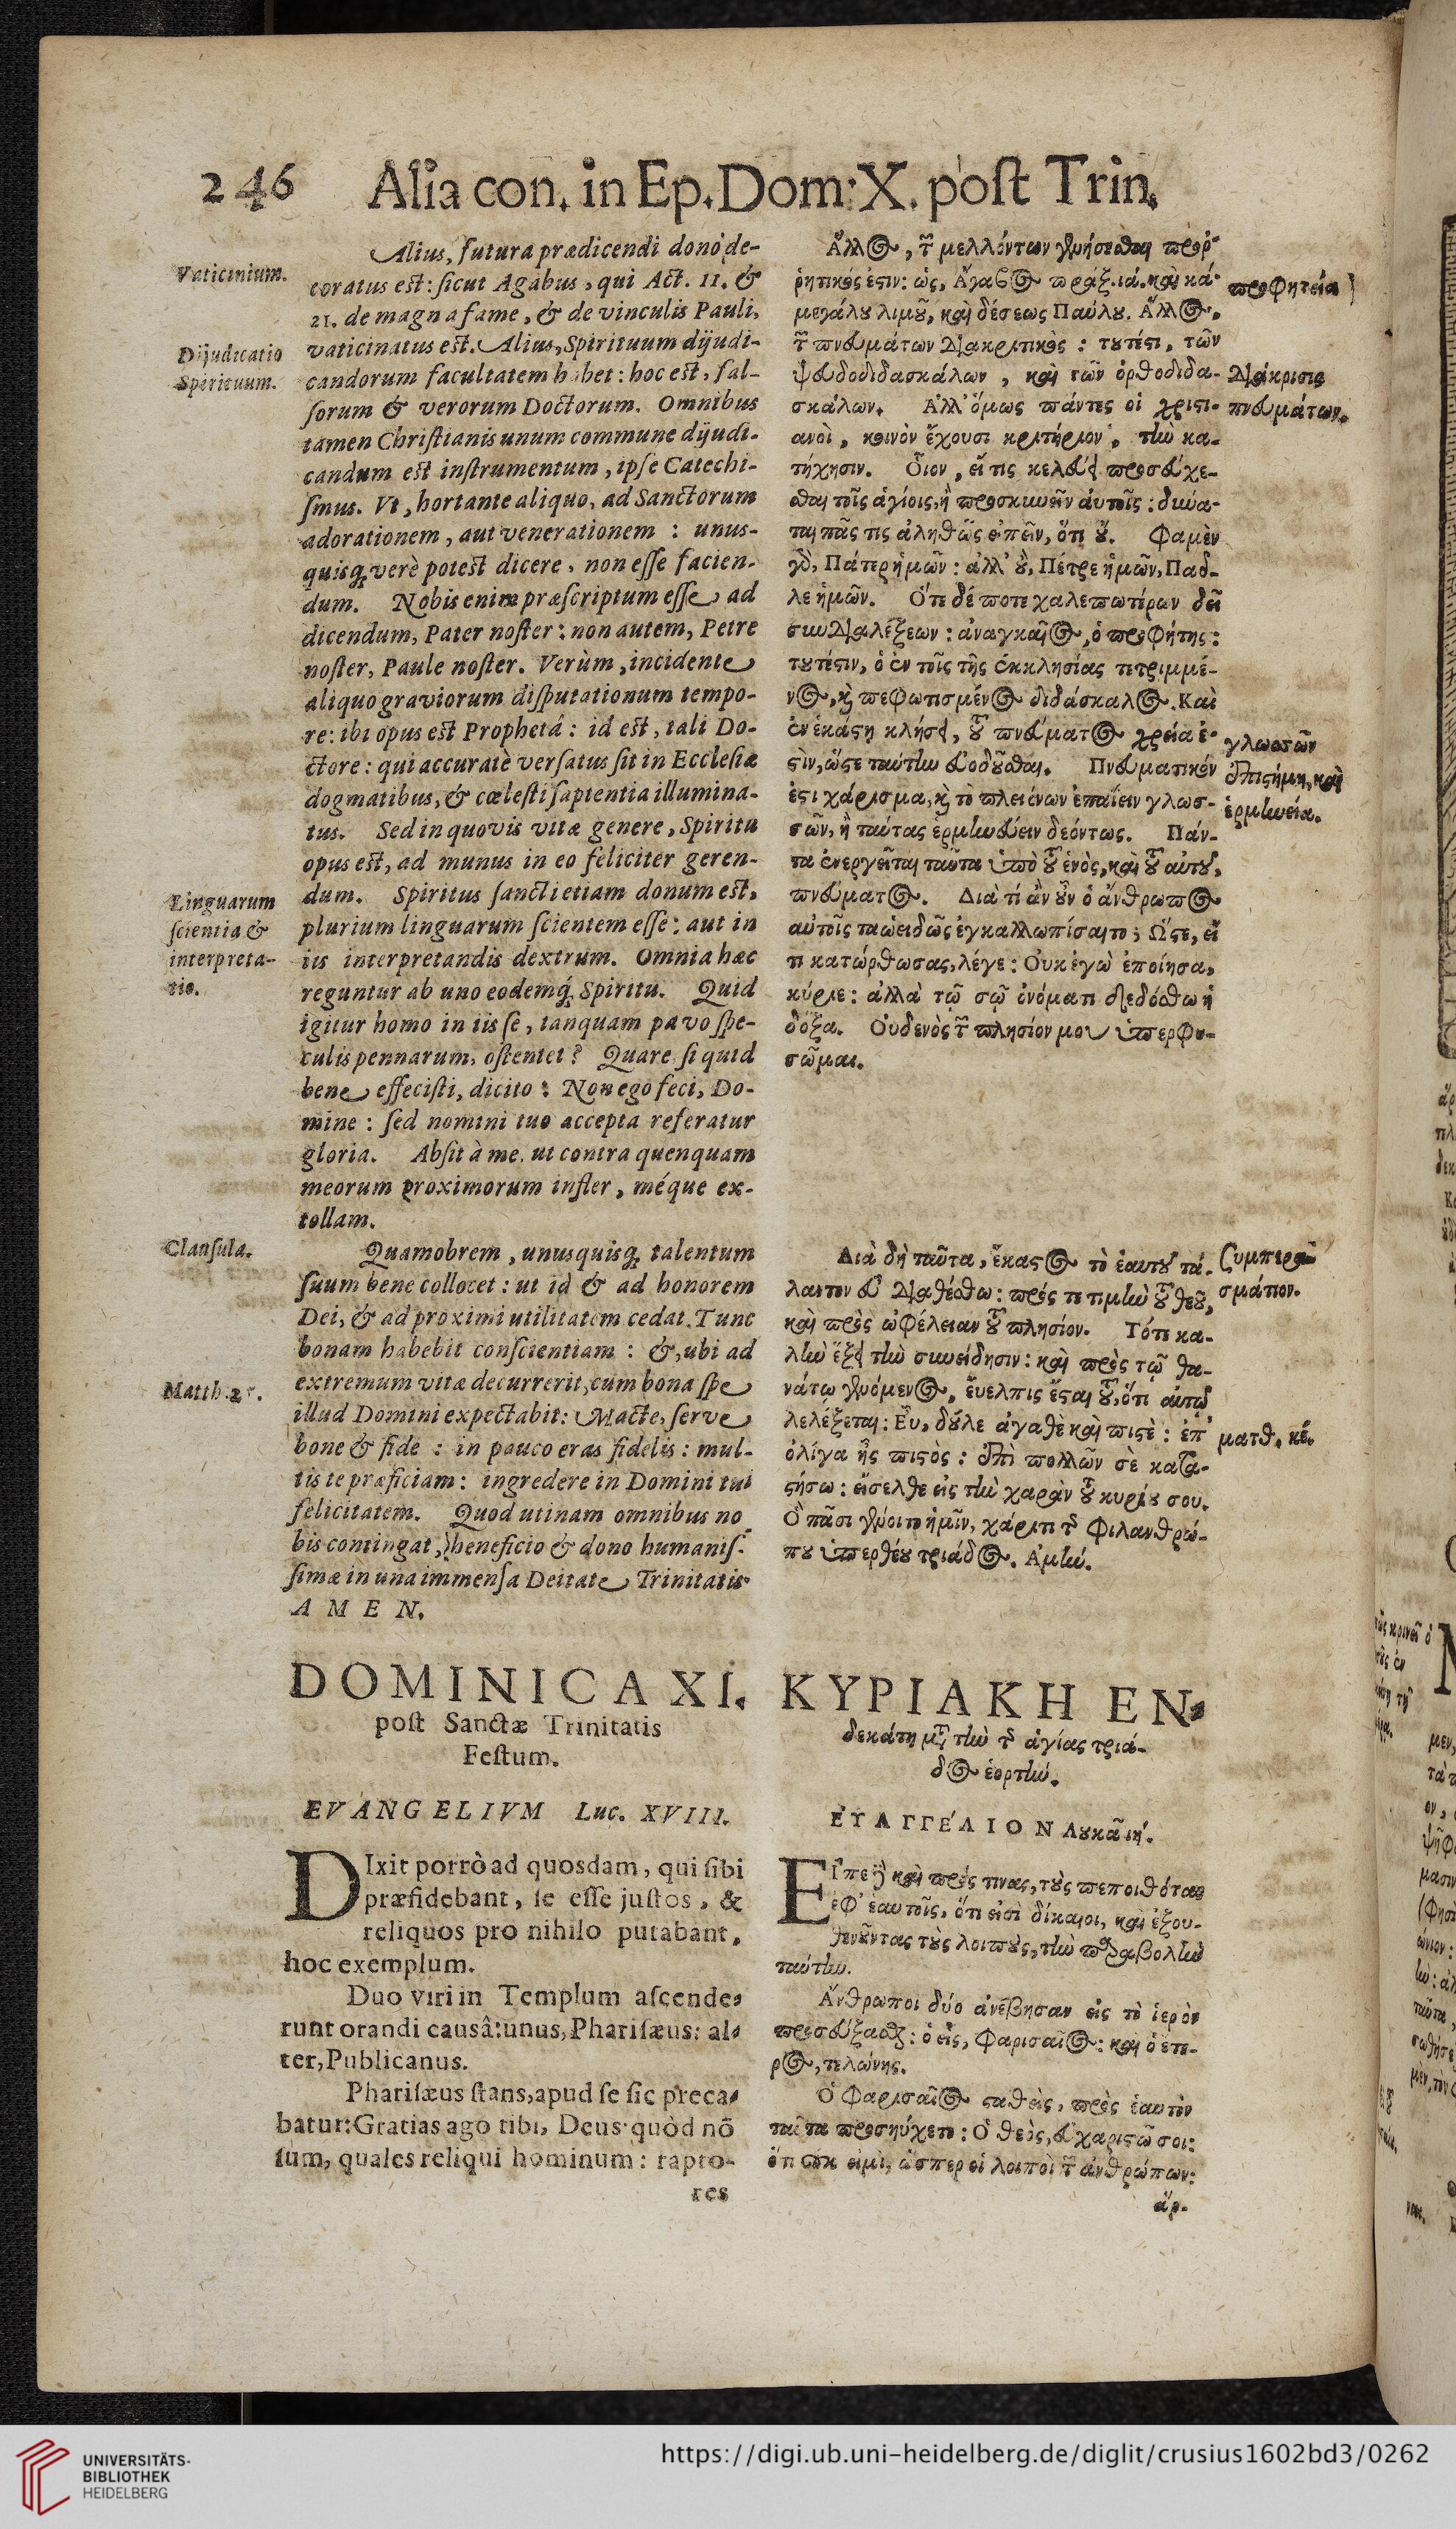 246 Alia con. in Ep. Dom: X. post Trin.
Vaticinium.
Dijudicatio
Spirituum.
Linguarum
scientia &
interpreta-
tio.
Clausula.
Matth. 25.
Alius, futura prædicendi dono de-
coratus est: sicut Agabus, qui Act. 11. &
21. de magna fame, & de vinculis Pauli,
vaticinatus est. Alius, Spirituum dijudi-
candorum facultatem habet: hoc est, fal-
sorum & verorum Doctorum. Omnibus
tamen Christianis unum commune dijudi-
candum est instrumentum, ipse Catechi-
smus. Vt, hortante aliquo, ad Sanctorum
adorationem, aut venerationem : unus-
quisq; verè potest dicere, non esse facien-
dum. Nobis enim præscriptum esse ad
dicendum, Pater noster: non autem, Petre
noster, Paule noster. Verùm, incidente
aliquo graviorum disputationum tempo-
re: ibi opus est Prophetâ: id est, tali Do-
ctore: qui accuratè versatus sit in Ecclesiæ
dogmatibus, & cœlesti sapientia illumina-
tus. Sed in quovis vitæ genere, Spiritu
opus est, ad munus in eo feliciter geren-
dum. Spiritus sancti etiam donum est,
plurium linguarum scientem esse: aut in
iis interpretandis dextrum. Omnia hæc
reguntur ab uno eodemq́; Spiritu. Quid
igitur homo in iis se, tanquam pavo spe-
culis pennarum, ostentet? Quare si quid
bene effecisti, dicito: Non ego feci, Do-
mine : sed nomini tuo accepta referatur
gloria. Absit à me, ut contra quenquam
meorum proximorum infler, méque ex-
tollam.
Quamobrem, unusquisq; talentum
suum bene collocet: ut id & ad honorem
Dei, & ad proximi utilitatem cedat. Tunc
bonam habebit conscientiam : &, ubi ad
extremum vitæ decurrerit, cum bona spe
illud Domini expectabit: Macte, serve
bone & fide : in pauco eras fidelis: mul-
tis te præficiam: ingredere in Domini tui
felicitatem. Quod utinam omnibus no-
bis contingat, beneficio & dono humanis-
simæ in una immensa Deitate Trinitatis
AMEN.
Ἄλλος, τῶν μελλόντων γενήσεσθαι προρ-
ρητικός ἐστιν: ὡς, Ἄγαβος πράξ. ια. καὶ κά-
μεγάλου λιμοῦ, καὶ δέσεως Παύλου. Ἄλλος,
τῶν πνευμάτων διακριτικὸς : τουτέστι, τῶν
ψευδοδιδασκάλων, καὶ τῶν ὀρθοδιδα-
σκάλων. Ἀλλ' ὅμως πάντες οἱ χριστι-
ανοὶ, κοινὸν ἔχουσι κριτήριον, τὴν κα-
τήχησιν. Οἷον, εἴ τις κελεύει προσεύχε-
σθαι τοῖς ἁγίοις, ἢ προσκυνεῖν αὐτοῖς: δύνα-
ται πᾶς τις ἀληθῶς εἰπεῖν, ὅτι οὔ. Φαμὲν
γὰρ, Πάτερ ἡμῶν: ἀλλ' οὐ, Πέτρε ἡμῶν, Παῦ-
λε ἡμῶν. Ὅτε δέ ποτε χαλεπωτέρων δεῖ
συνδιαλέξεων: ἀναγκαῖος, ὁ προφήτης:
τουτέστιν, ὁ ἐν τοῖς τῆς ἐκκλησίας τετριμμέ-
νος, καὶ πεφωτισμένος διδάσκαλος. Καὶ
ἐν ἑκάστῃ κλήσει, τοῦ πνεύματος χρεία ἐ-
στὶν, ὥστε ταύτην εὐοδοῦσθαι. Πνευματικόν
ἐστι χάρισμα, καὶ τὸ πλειόνων ἐπαΐειν γλωσ-
σῶν, ἢ ταύτας ἑρμηνεύειν δεόντως. Πάν-
τα ἐνεργεῖται ταῦτα ὑπὸ τοῦ ἑνὸς, καὶ τοῦ αὐτοῦ,
πνεύματος. Διὰ τί ἂν οὖν ὁ ἄνθρωπος
αὐτοῖς ταωειδῶς ἐγκαλλωπίσαιτο; Ὥστε, εἴ
τι κατώρθωσας, λέγε: Οὐκ ἐγὼ ἐποίησα,
κύριε: ἀλλὰ τῷ σῷ ὀνόματι δεδόσθω ἡ
δόξα. Οὐδενὸς τῶν πλησίον μου ὑπερφυ-
σῶμαι.
Διὰ δὴ ταῦτα, ἕκαστος τὸ ἑαυτοῦ τά-
λαντον εὖ διαθέσθω: πρός τε τιμὴν τοῦ θεοῦ,
καὶ πρὸς ὠφέλειαν τοῦ πλησίον. Τότε κα-
λὴν ἕξει τὴν συνείδησιν: καὶ πρὸς τῷ θα-
νάτῳ γενόμενος, εὔελπις ἔσται τοῦ, ὅτι αὐτῷ
λελέξεται: Εὖ, δοῦλε ἀγαθὲ καὶ πιστέ: ἐπ'
ὀλίγα ἦς πιστός: ἐπὶ πολλῶν σὲ κατα-
στήσω: εἴσελθε εἰς τὴν χαρὰν τοῦ κυρίου σου.
Ὃ πᾶσι γένοιτο ἡμῖν, χάριτι τῆς φιλανθρώ-
που ὑπερθέου τριάδος. Ἀμήν.
προφητεία
διάκρισις
πνευμάτων.
γλωσσῶν
ἐπιστήμη, καὶ
ἑρμηνεία.
Συμπερα-
σμάτιον.
ματθ. κέ.
DOMINICA XI.
post Sanctæ Trinitatis
Festum.
EVANGELIVM Luc. XVIII.
DIxit porrò ad quosdam, qui sibi
præfidebant, se esse justos, &
reliquos pro nihilo putabant,
hoc exemplum.
Duo viri in Templum ascende-
runt orandi causâ: unus, Pharisæus: al-
ter, Publicanus.
Pharisæus stans, apud se sic preca-
batur: Gratias ago tibi, Deus quòd nō
sum, quales reliqui hominum: rapto-
res
ΚΥΡΙΑΚΗ ΕΝ-
δεκάτη μετὰ τὴν τῆς ἁγίας τριά-
δος ἑορτήν.
ΕΥΑΓΓΕΛΙΟΝ Λουκᾶ ιή.
Εἶπε δὲ καὶ πρός τινας, τοὺς πεποιθότας
ἐφ' ἑαυτοῖς, ὅτι εἰσὶ δίκαιοι, καὶ ἐξου-
θενοῦντας τοὺς λοιποὺς, τὴν παραβολὴν
ταύτην.
Ἄνθρωποι δύο ἀνέβησαν εἰς τὸ ἱερὸν
προσεύξασθαι: ὁ εἷς, Φαρισαῖος: καὶ ὁ ἕτε-
ρος, τελώνης.
Ὁ Φαρισαῖος σταθεὶς, πρὸς ἑαυτὸν
ταῦτα προσηύχετο: Ὁ θεὸς, εὐχαριστῶ σοι:
ὅτι οὐκ εἰμὶ, ὥσπερ οἱ λοιποὶ τῶν ἀνθρώπων:
ἅρ-
UNIVERSITÄTS-
BIBLIOTHEK
HEIDELBERG
https://digi.ub.uni-heidelberg.de/diglit/crusius1602bd3/0262